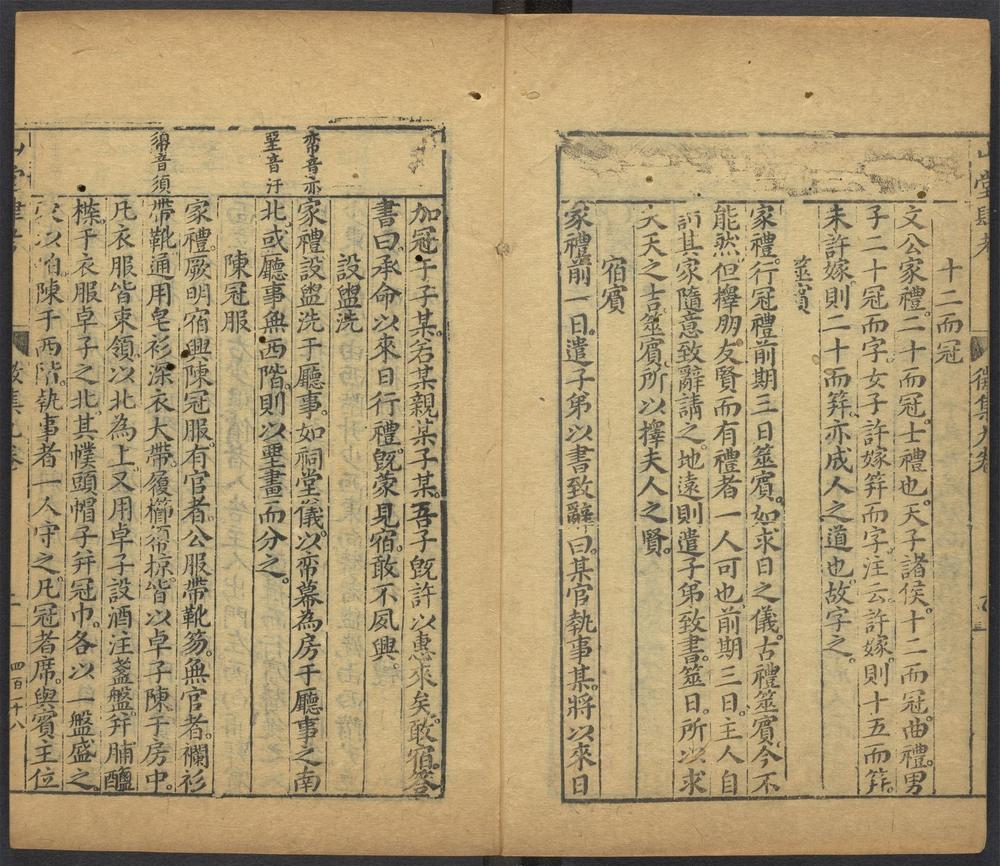 十二而冠
文公家禮。二十而冠。士禮也。天子諸侯。十二而冠。曲禮。男
子二十冠而字。女子許嫁筓而字。注云。許嫁。則十五而筓。
未許嫁。則二十而筓。亦成人之道也。故字之。
筮賓
家禮。行冠禮前期三日筮賓。如求日之儀。古禮筮賓。今不
能然。但擇朋友賢而有禮者一人可也。前期三日。主人自
詣其家隨意致辭請之。地遠則遣子弟致書。筮日。所以求
夫天之吉。筮賓。所以擇夫人之賢。
宿賓
家禮前一日。遣子弟以書致辭曰。某官執事。某將以來日
加冠于子某。若某親某子某。吾子旣許以惠來矣。敢宿。答
書曰。承命以來日行禮。旣蒙見宿。敢不夙興。
設盥洗
帟音亦
家禮設盥洗于廳事。如祠堂儀。以帟幕為房于廳事之南
堊音汙
北。或廳事無西階。則以堊畫而分之。
陳冠服
家禮。厥明宿興陳冠服。有官者。公服帶靴笏。無官者。襴衫
音須
帶靴。通用皂衫。深衣大帶。履櫛掠。皆以卓子陳于房中。
凡衣服皆東領。以北為上。又用卓子設酒注盞盤。幷脯醢
于衣服卓子之北。其幞頭帽子幷冠巾。各以一盤盛之。
以帕。陳于西階。執事者一人守之。凡冠者席。與賓主位
四百二十八